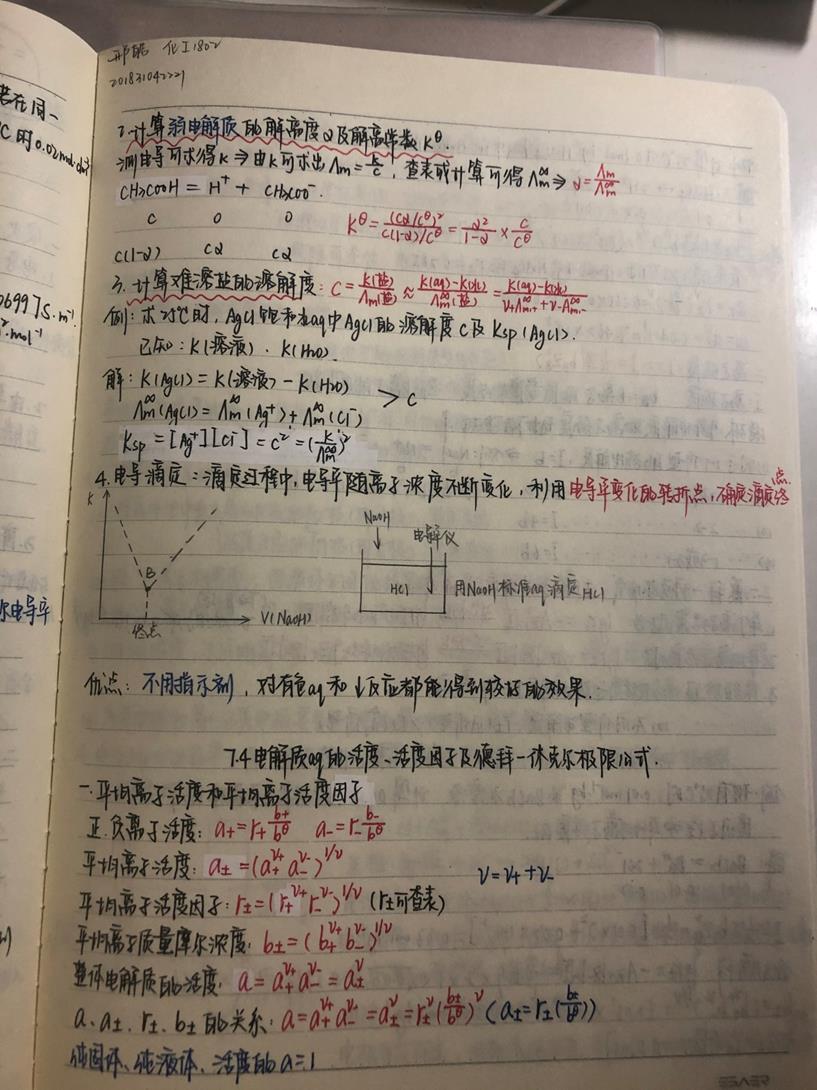 化工1802
201831042221
老在同一
℃时0.02mol·dm³
06997S·m⁻¹
²·mol⁻¹
尔电导率
2.计算弱电解质的解离度α及解离常数K^θ.
测电导可求得κ⇒由κ可求出Λm=κ/c，查表或计算可得Λm^∞⇒α=Λm/Λm^∞
CH₃COOH = H⁺ + CH₃COO⁻.
c 0 0 K^θ=(cα/c^θ)²/(c(1-α)/c^θ)=α²/(1-α)×c/c^θ
c(1-α) cα cα
3.计算难溶盐的溶解度：C=κ(盐)/Λm(盐)≈(κ(aq)-κ(水))/Λm^∞(盐)=(κ(aq)-κ(水))/(ν₊Λ^∞m,₊+ν₋Λ^∞m,₋)
例：求25℃时，AgCl饱和水aq中AgCl的溶解度c及Ksp(AgCl).
已知：κ(溶液)、κ(H₂O).
解：κ(AgCl)=κ(溶液)-κ(H₂O)
> C
Λm^∞(AgCl)=Λm^∞(Ag⁺)+Λm^∞(Cl⁻)
Ksp=[Ag⁺][Cl⁻]=c²=(κ/Λm^∞)²
4.电导滴定：滴定过程中，电导率随离子浓度不断变化，利用电导率变化的转折点，确定滴定终点.
κ
B
终点
V(NaOH)
NaOH
电解仪
HCl
用NaOH标准aq滴定HCl
优点：不用指示剂，对有色aq和↓反应都能得到较好的效果.
7.4电解质aq的活度、活度因子及德拜-休克尔极限公式.
一.平均离子活度和平均离子活度因子
正.负离子活度：a₊=r₊b₊/b^θ a₋=r₋b₋/b^θ
平均离子活度：a±=(a₊^ν₊ a₋^ν₋)^1/ν ν=ν₊+ν₋
平均离子活度因子：r±=(r₊^ν₊ r₋^ν₋)^1/ν (r±可查表)
平均离子质量摩尔浓度：b±=(b₊^ν₊ b₋^ν₋)^1/ν
整体电解质的活度：a=a₊^ν₊ a₋^ν₋=a±^ν
a、a±、r±、b±的关系：a=a₊^ν₊ a₋^ν₋=a±^ν=r±^ν(b±/b^θ)^ν (a±=r±(b±/b^θ))
纯固体、纯液体、活度的a=1